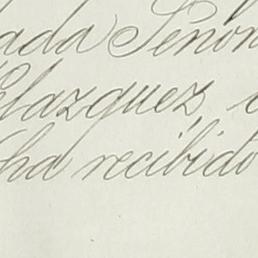 ada Señor
lazquez,
ha recibido